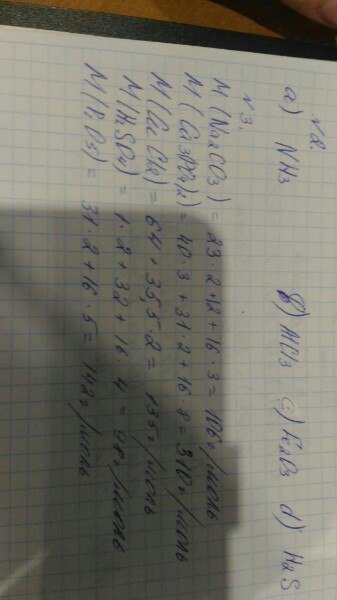 №2.
а) NH3 б) AlCl3 с) Fe2O3 d) H2S
№3.
M (Na2CO3) = 23·2+12+16·3=106г/моль
M (Ca3(PO4)2) = 40·3+31·2+16·8=310г/моль
M (CuCl2) = 64+35,5·2=135г/моль
M (H2SO4) = 1·2+32+16·4=98г/моль
M (P2O5) = 31·2+16·5=142г/моль